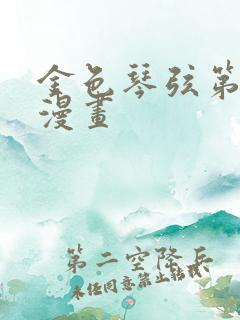 金色琴弦第
漫畫
第二空降兵
未经同意禁止转载